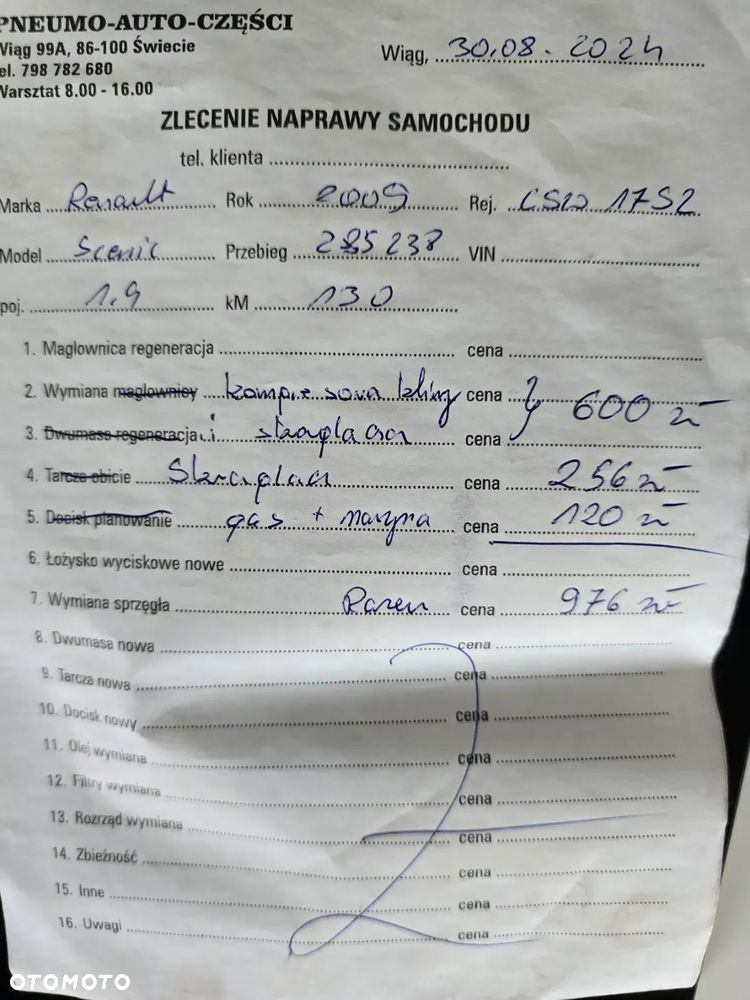 PNEUMO-AUTO-CZĘŚCI
Wiąg 99A, 86-100 Świecie
el. 798 782 680
Warsztat 8.00 - 16.00
Wiąg, 30.08.2024
ZLECENIE NAPRAWY SAMOCHODU
tel. klienta
Marka Renault Rok 2009 Rej. 17S2
Model Scenic Przebieg 285238 VIN
poj. 1.9 kM 130
1. Maglownica regeneracja cena
2. Wymiana maglownicy kompresora klimy cena } 600 zł
3. Dwumasa regeneracja i skraplacza cena
4. Tarcza obicie Skraplacz cena 256 zł
5. Docisk planowanie gas + cena 120 zł
6. Łożysko wyciskowe nowe cena
7. Wymiana sprzęgła Razem cena 976 zł
8. Dwumasa nowa cena
9. Tarcza nowa cena
10. Docisk nowy cena
11. Olej wymiana cena
12. Filtry wymiana cena
13. Rozrząd wymiana cena
14. Zbieżność cena
15. Inne cena
16. Uwagi cena
OTOMOTO